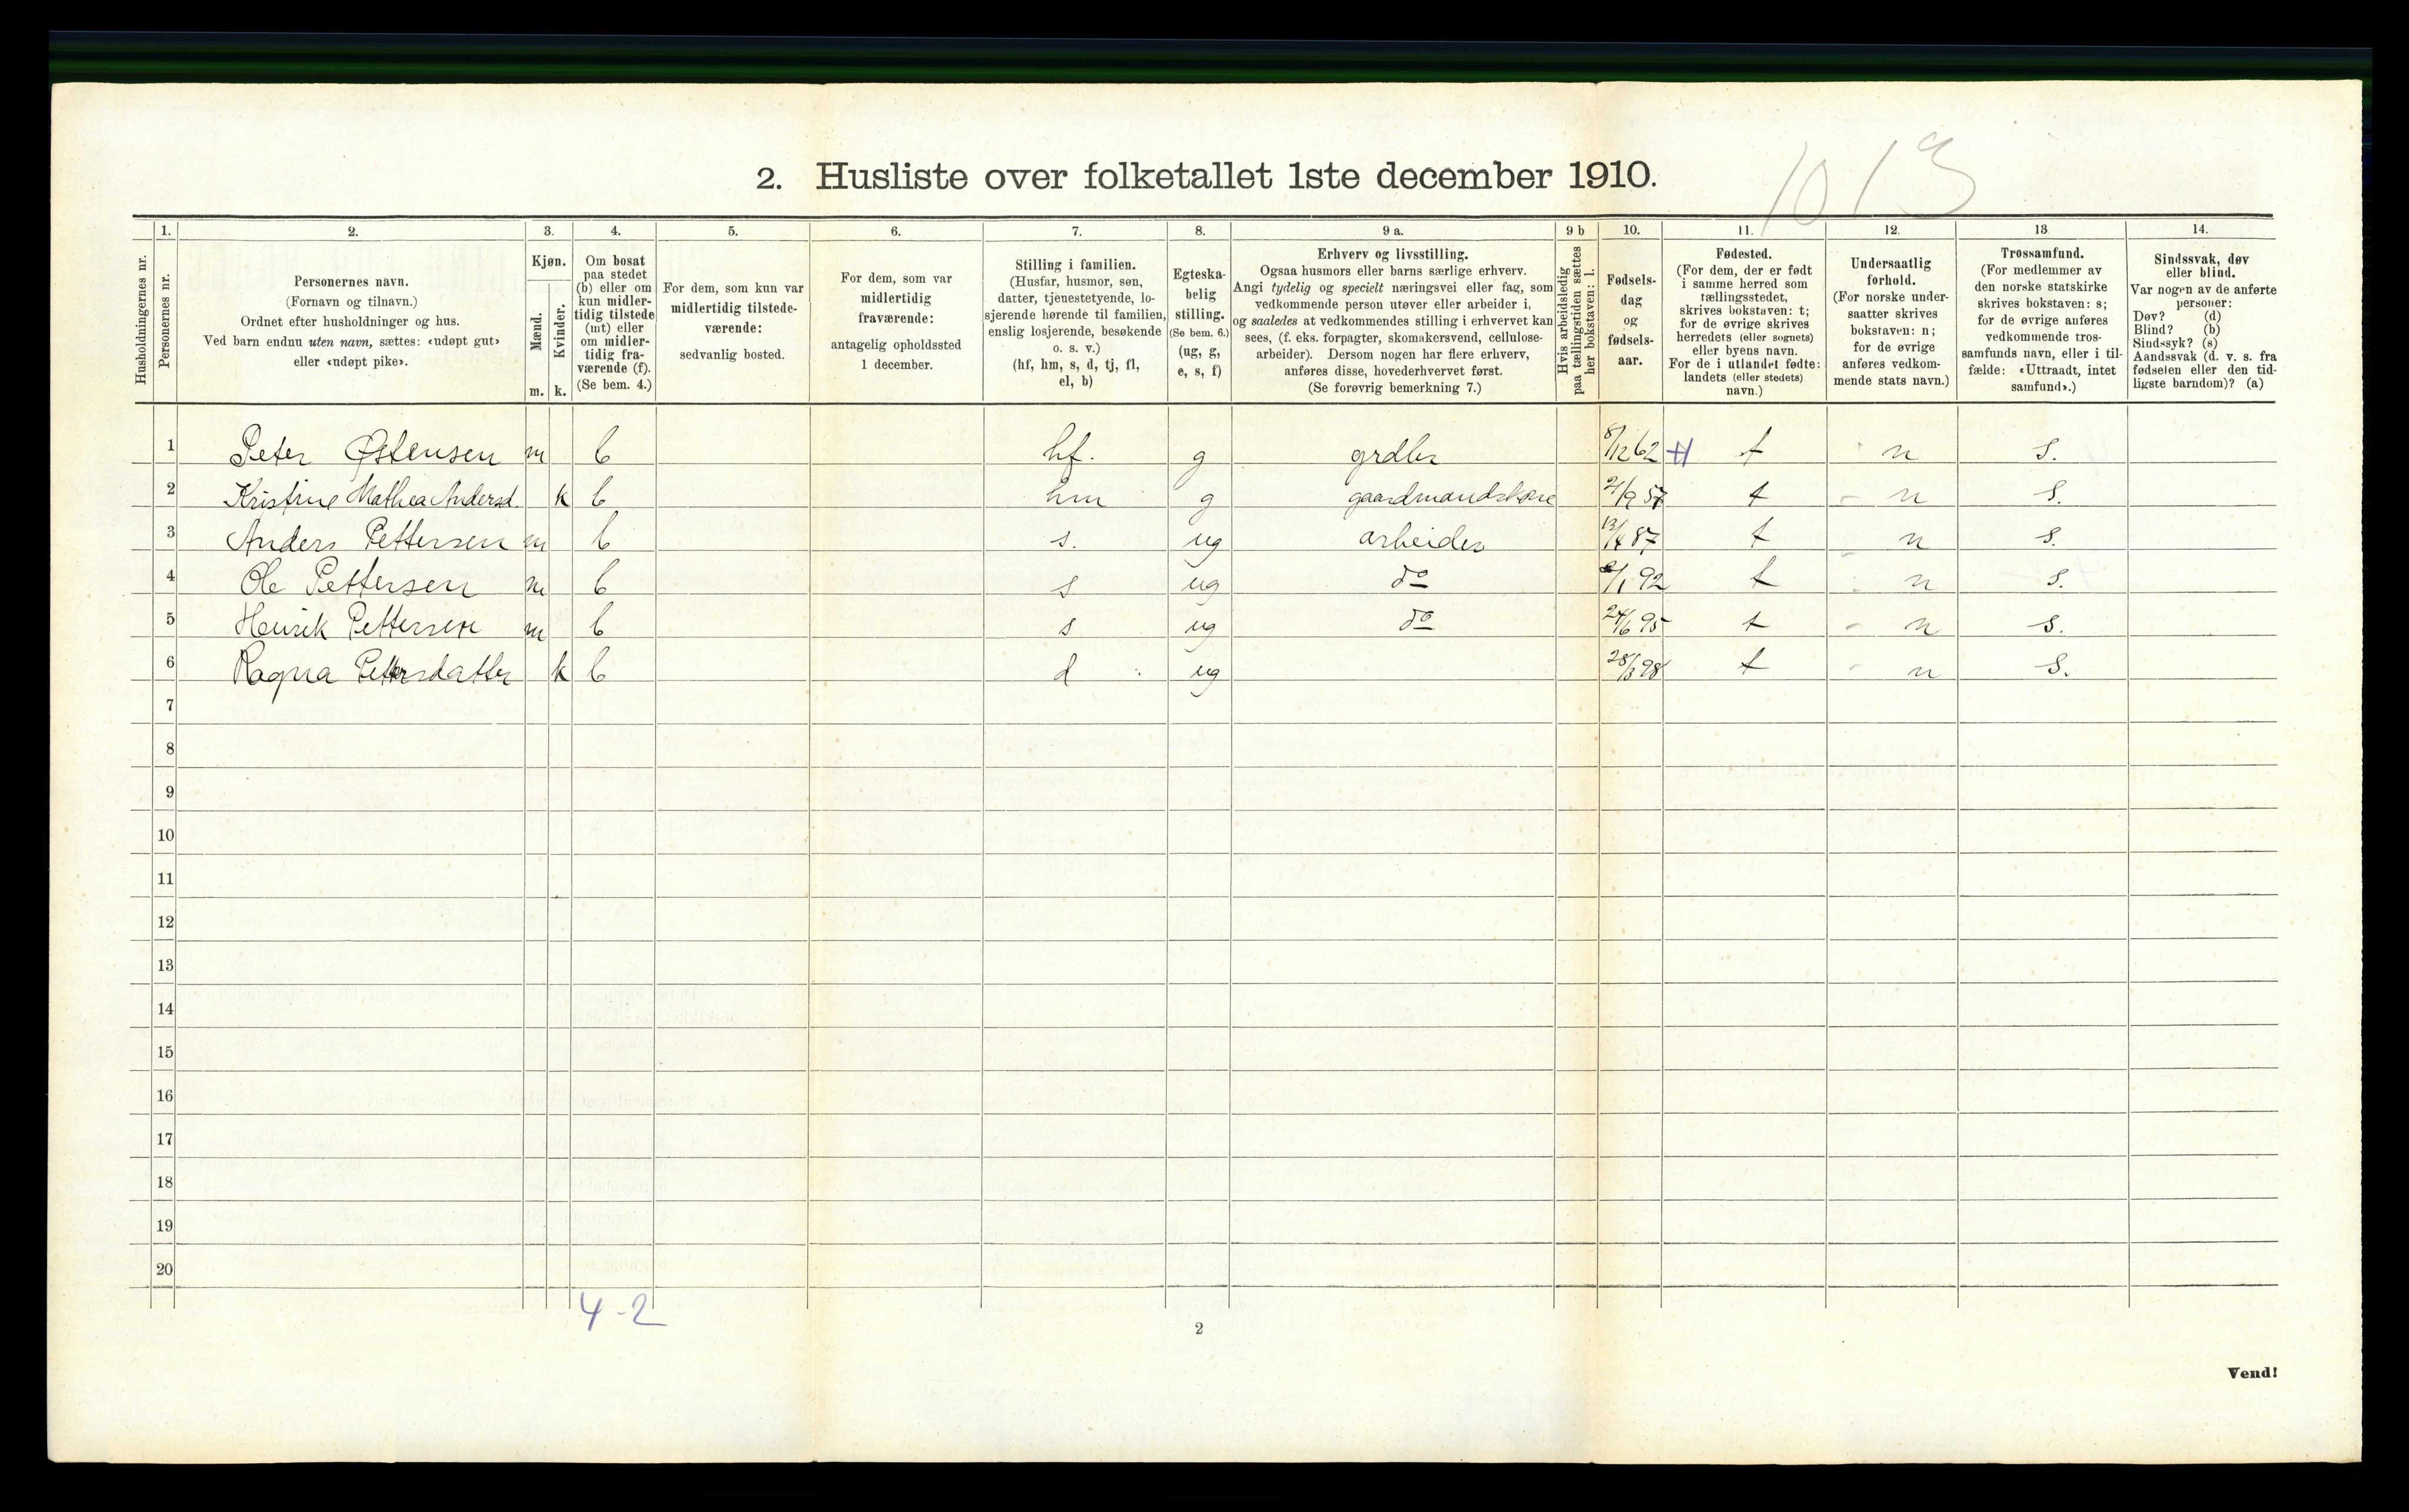 1013
2. Husliste over folketallet 1ste december 1910.
Husholdningernes nr.
1.
Personernes nr.
2.
Personernes navn.
(Fornavn og tilnavn.)
Ordnet efter husholdninger og hus.
Ved barn endnu uten navn, sættes: «udøpt gut»
eller «udøpt pike».
3.
Kjøn.
Mænd.
Kvinder.
m. k.
4.
Om bosat
paa stedet
(b) eller om
kun midler-
tidig tilstede
(mt) eller
om midler-
tidig fra-
værende (f).
(Se bem. 4.)
5.
For dem, som kun var
midlertidig tilstede-
værende:
sedvanlig bosted.
6.
For dem, som var
midlertidig
fraværende:
antagelig opholdssted
1 december.
7.
Stilling i familien.
(Husfar, husmor, søn,
datter, tjenestetyende, lo-
sjerende hørende til familien,
enslig losjerende, besøkende
o. s. v.)
(hf, hm, s, d, tj, fl,
el, b)
8.
Egteska-
belig
stilling.
(Se bem. 6.)
(ug, g,
e, s, f)
9 a.
Erhverv og livsstilling.
Ogsaa husmors eller barns særlige erhverv.
Angi tydelig og specielt næringsvei eller fag, som
vedkommende person utøver eller arbeider i,
og saaledes at vedkommendes stilling i erhvervet kan
sees, (f. eks. forpagter, skomakersvend, cellulose-
arbeider). Dersom nogen har flere erhverv,
anføres disse, hovederhvervet først.
(Se forøvrig bemerkning 7.)
9 b
Hvis arbeidsledig
paa tællingstiden sættes
her bokstaven: l.
10.
Fødsels-
dag
og
fødsels-
aar.
11.
Fødested.
(For dem, der er født
i samme herred som
tællingsstedet,
skrives bokstaven: t;
for de øvrige skrives
herredets (eller sognets)
eller byens navn.
For de i utlandet fødte:
landets (eller stedets)
navn.)
12.
Undersaatlig
forhold.
(For norske under-
saatter skrives
bokstaven: n;
for de øvrige
anføres vedkom-
mende stats navn.)
13
Trossamfund.
(For medlemmer av
den norske statskirke
skrives bokstaven: s;
for de øvrige anføres
vedkommende tros-
samfunds navn, eller i til-
fælde: «Uttraadt, intet
samfund».)
14.
Sindssvak, døv
eller blind.
Var nogen av de anførte
personer:
Døv? (d)
Blind? (b)
Sindssyk? (s)
Aandssvak (d. v. s. fra
fødselen eller den tid-
ligste barndom)? (a)
1 Peter Østensen m b hf. g grdbr 8/12 62 t n s.
2 Kristine Mathea Andersd. k b hm g gaardmandskone 21/9 57 t n s.
3 Anders Pettersen m b s. ug arbeider 13/4 87 t n s.
4 Ole Pettersen m b s ug do /1 92 t n s.
5 Henrik Pettersen m b s ug do 24/6 95 t n s.
6 Ragna Pettersdatter k b d ug 28/3 98 t n s.
7
8
9
10
11
12
13
14
15
16
17
18
19
20
4-2
2
Vend!